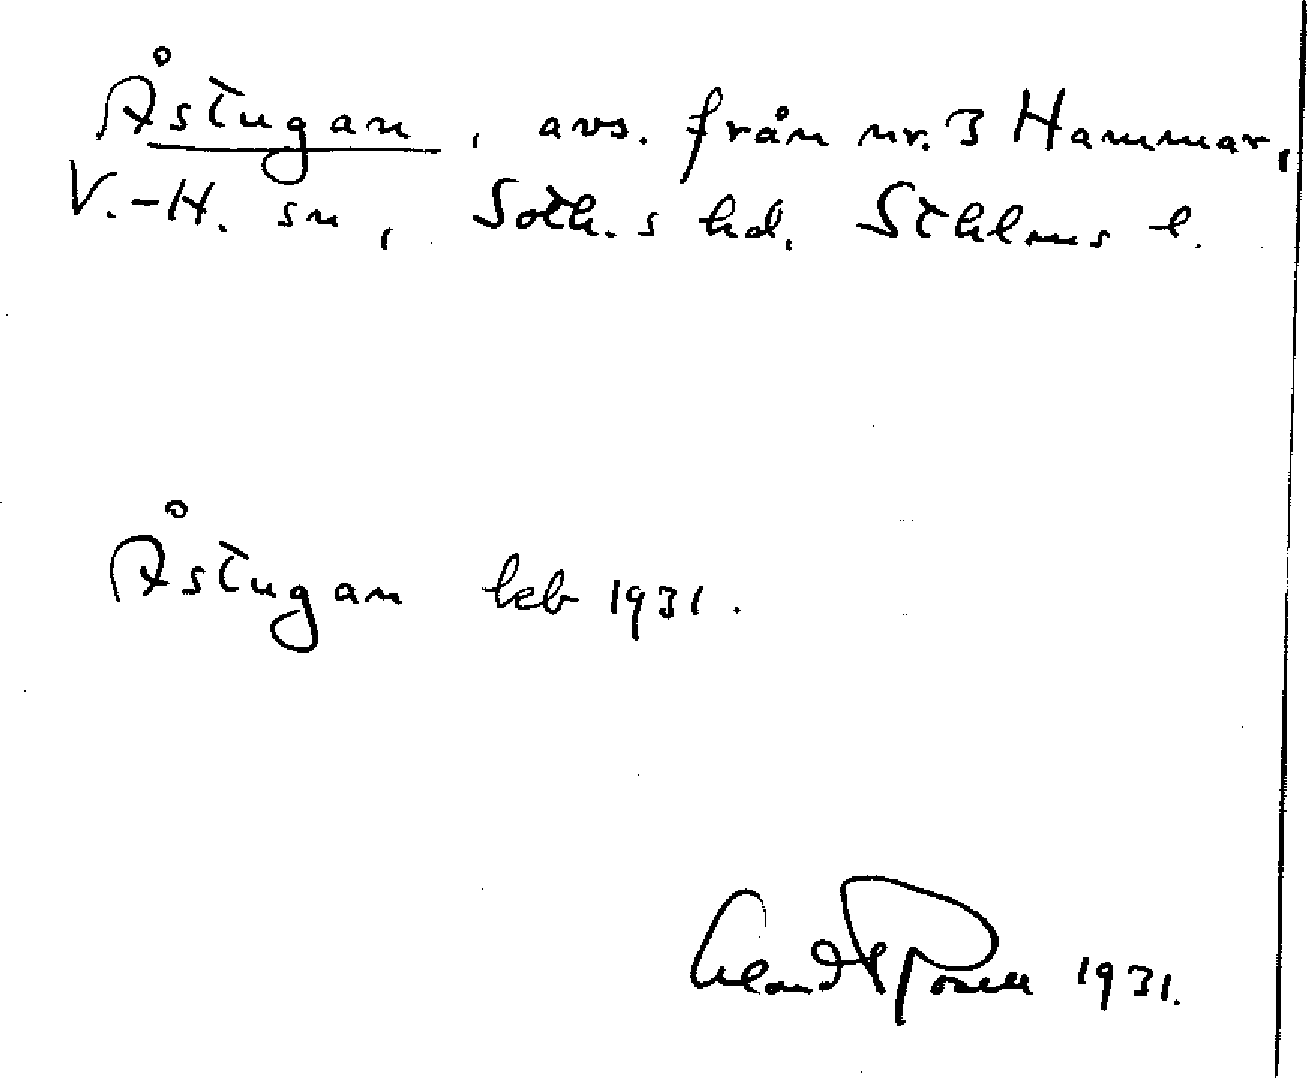 Åstugan, avs. från nr. 3 Hammar,
V.-H. sn, Soth.s hd. Sthlms l.
Åstugan kb 1931.
1931.